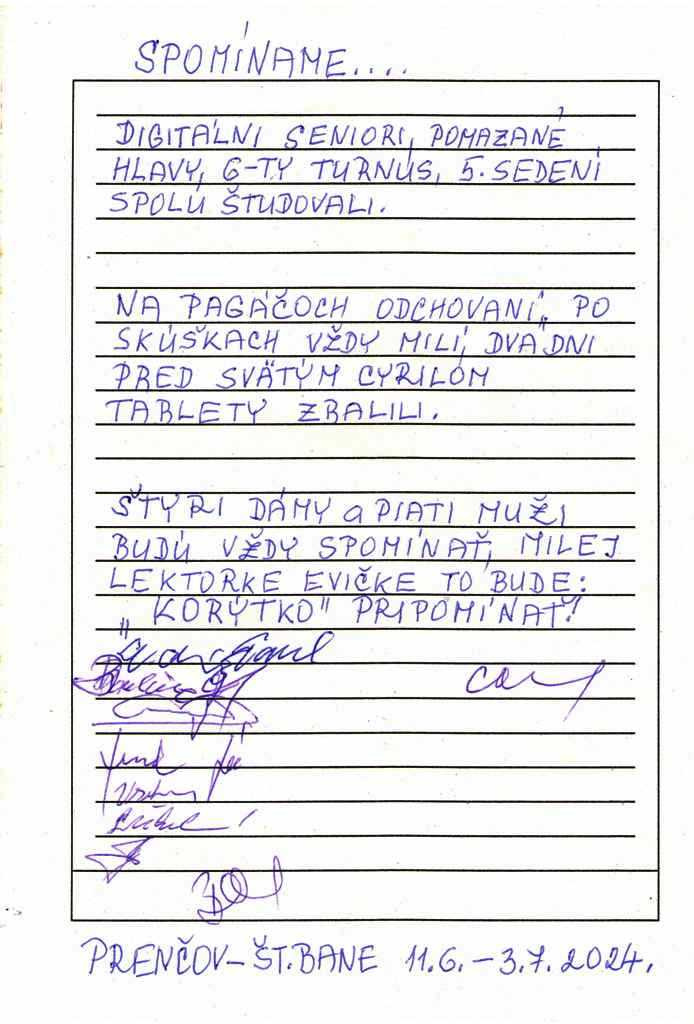 SPOMÍNAME....
DIGITÁLNI SENIORI, POMAZANÉ
HLAVY, 6-TY TURNUS, 5. SEDENÍ
SPOLU ŠTUDOVALI.
NA PAGÁČOCH ODCHOVANÍ, PO
SKÚŠKACH VŽDY MILÍ, DVA DNI
PRED SVÄTÝM CYRILOM
TABLETY ZBALILI.
ŠTYRI DÁMY a PIATI MUŽI
BUDÚ VŽDY SPOMÍNAŤ, MILEJ
LEKTORKE EVIČKE TO BUDE:
„KORÝTKO" PRIPOMÍNAŤ!
PRENČOV-ŠT.BANE 11.6.-3.7.2024.